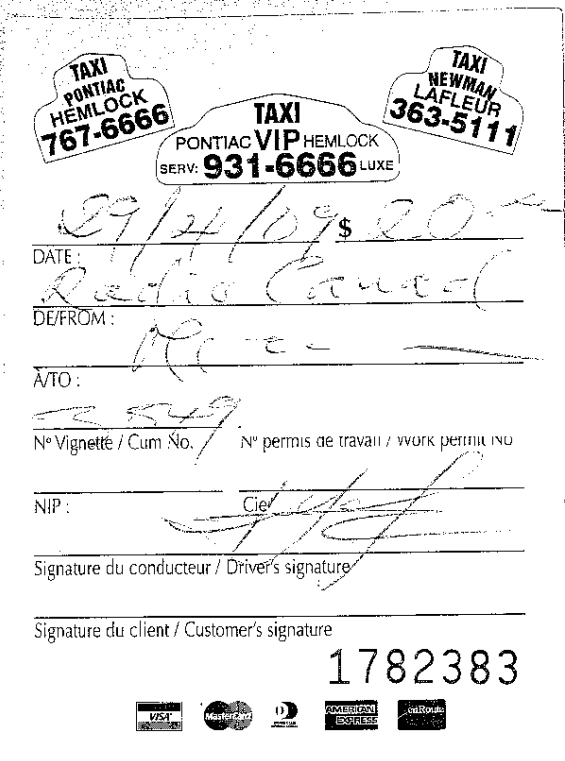 TAXI
PONTIAC
HEMLOCK
767-6666
TAXI
PONTIAC VIP HEMLOCK
SERV: 931-6666 LUXE
TAXI
NEWMAN
LAFLEUR
363-5111
29/4/09 $ 20
DATE :
Radio
DE/FROM :
A/TO :
Nº Vignette / Cum No. Nº permis de travail / Work permit No
NIP : Cie
Signature du conducteur / Driver's signature
Signature du client / Customer's signature
1782383
VISA MasterCard AMERICAN EXPRESS enRoute